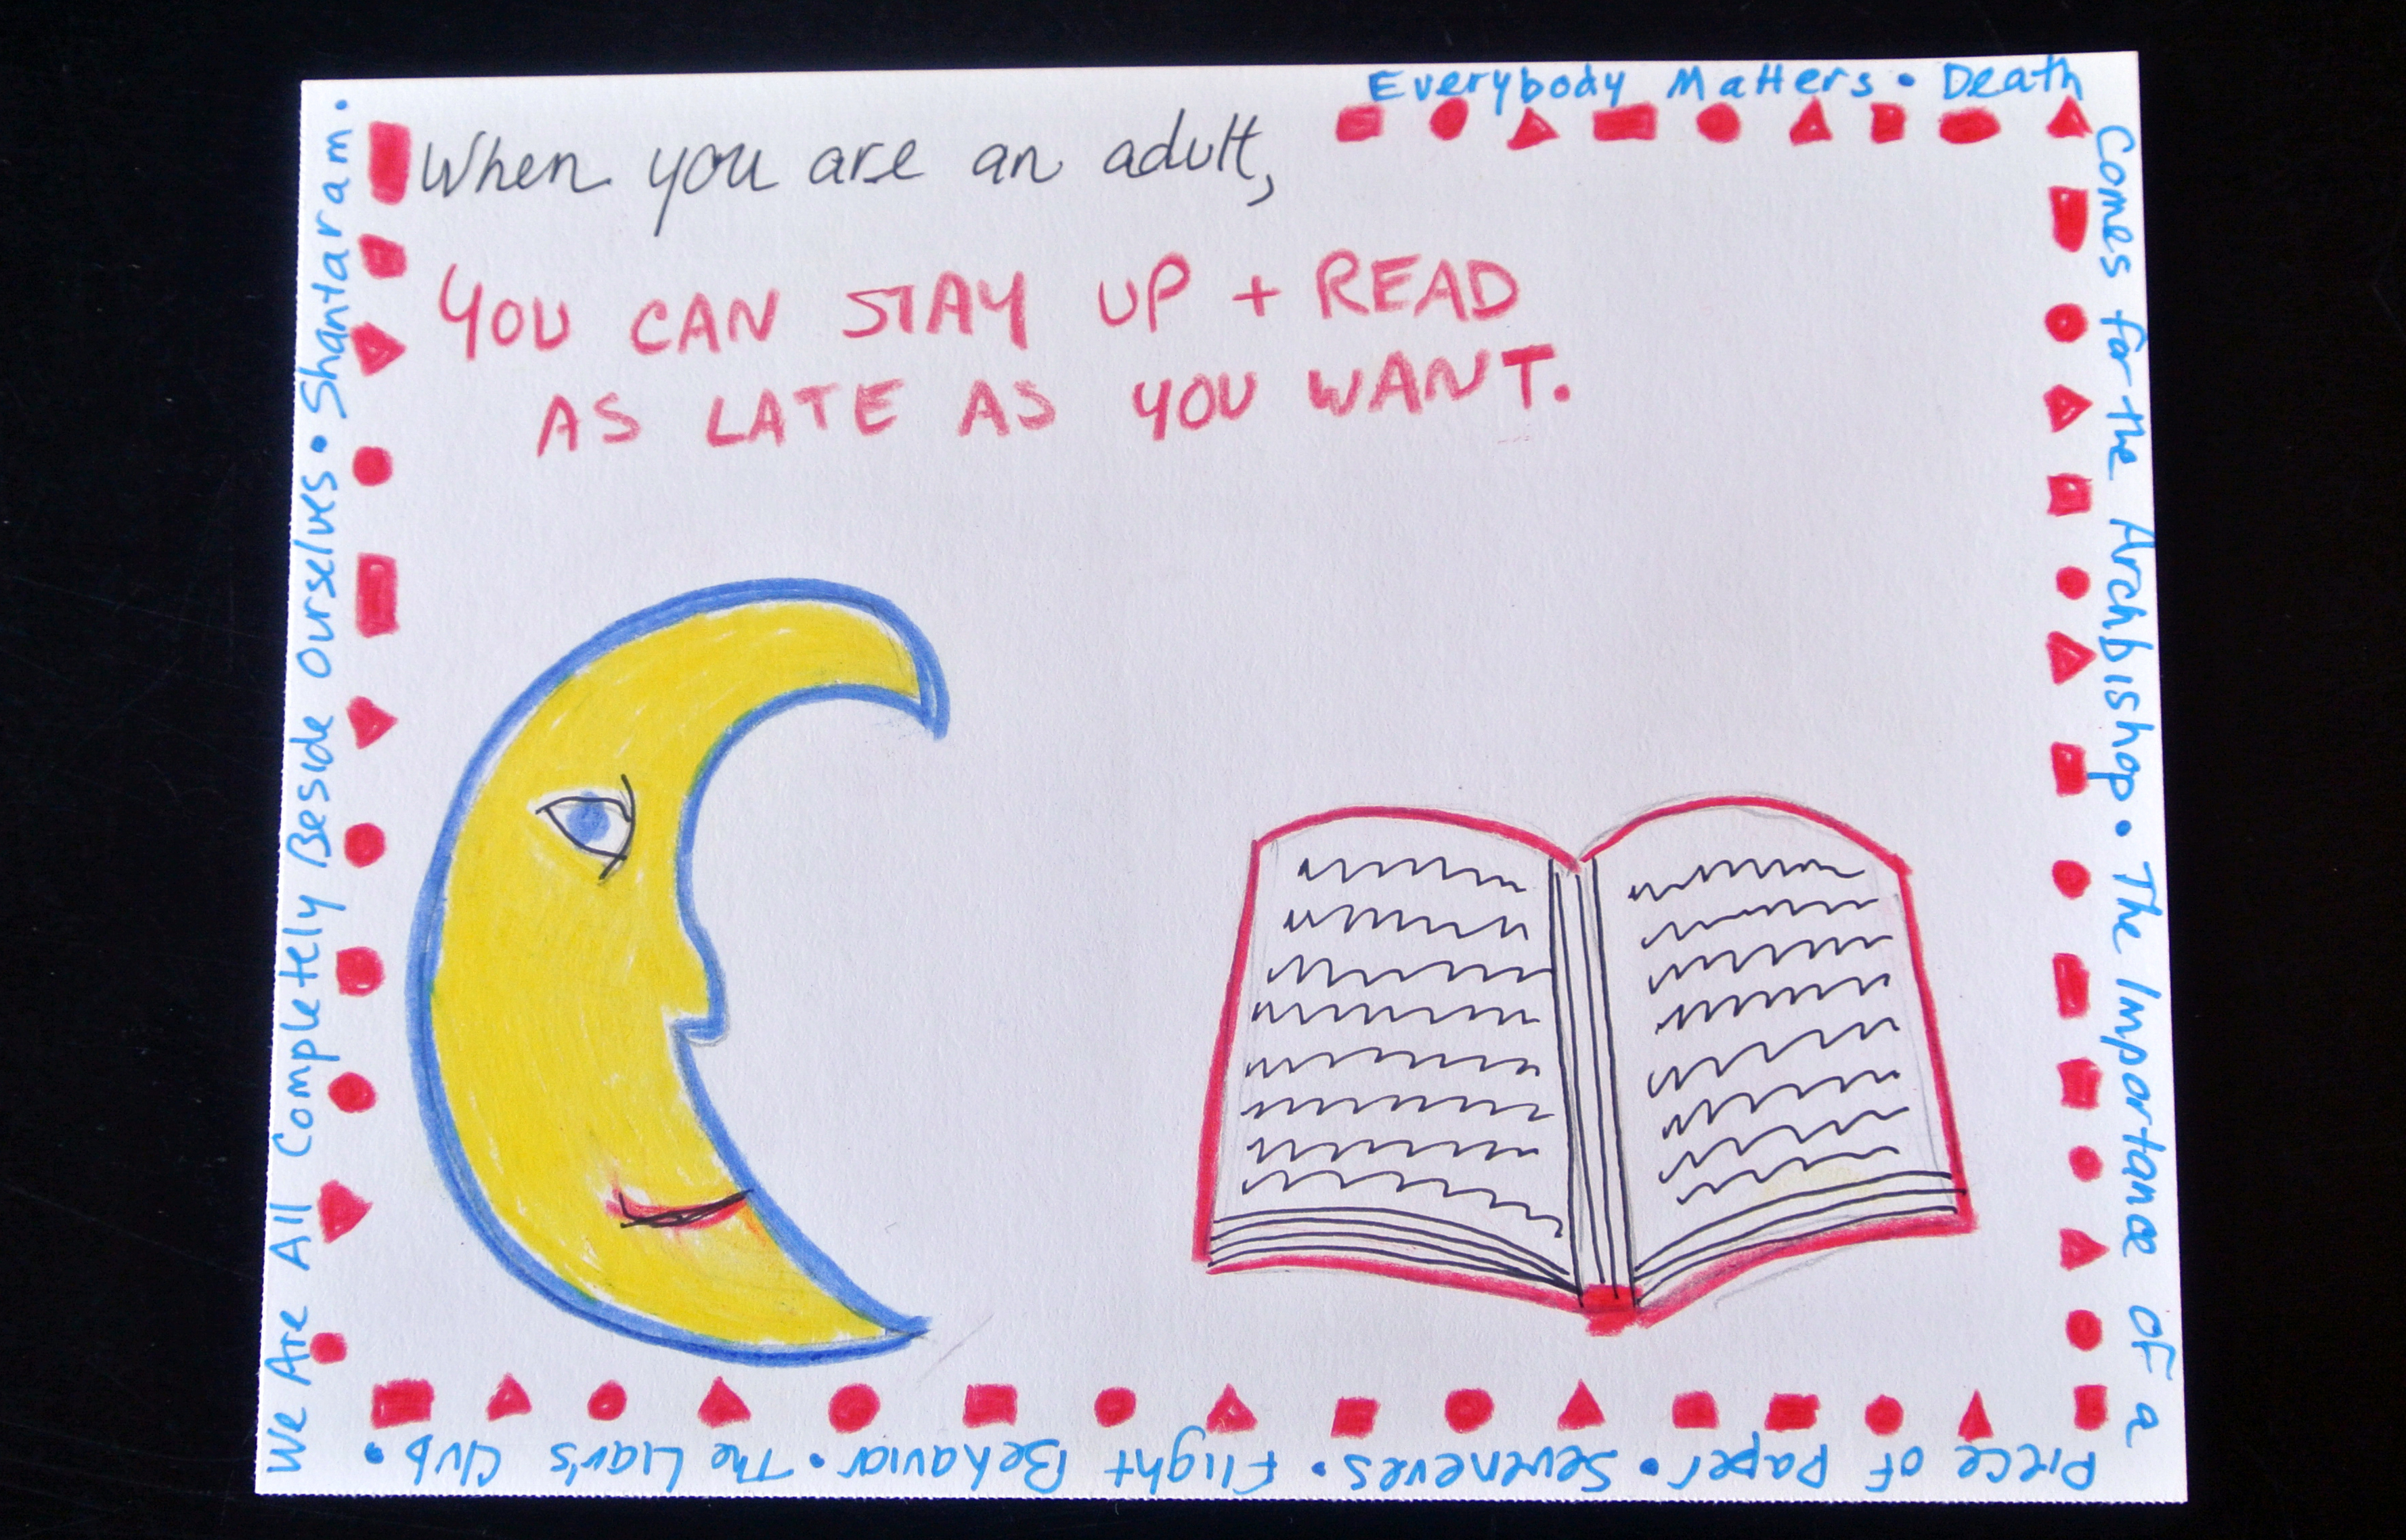 When you are an adult,
YOU CAN STAY UP + READ
AS LATE AS YOU WANT.
Everybody Matters • Death
Comes for the Archbishop • The Importance of a
Piece of Paper • Seveneves • Flight Behavior • The Liar's Club •
We Are All Completely Beside Ourselves • Shantaram •